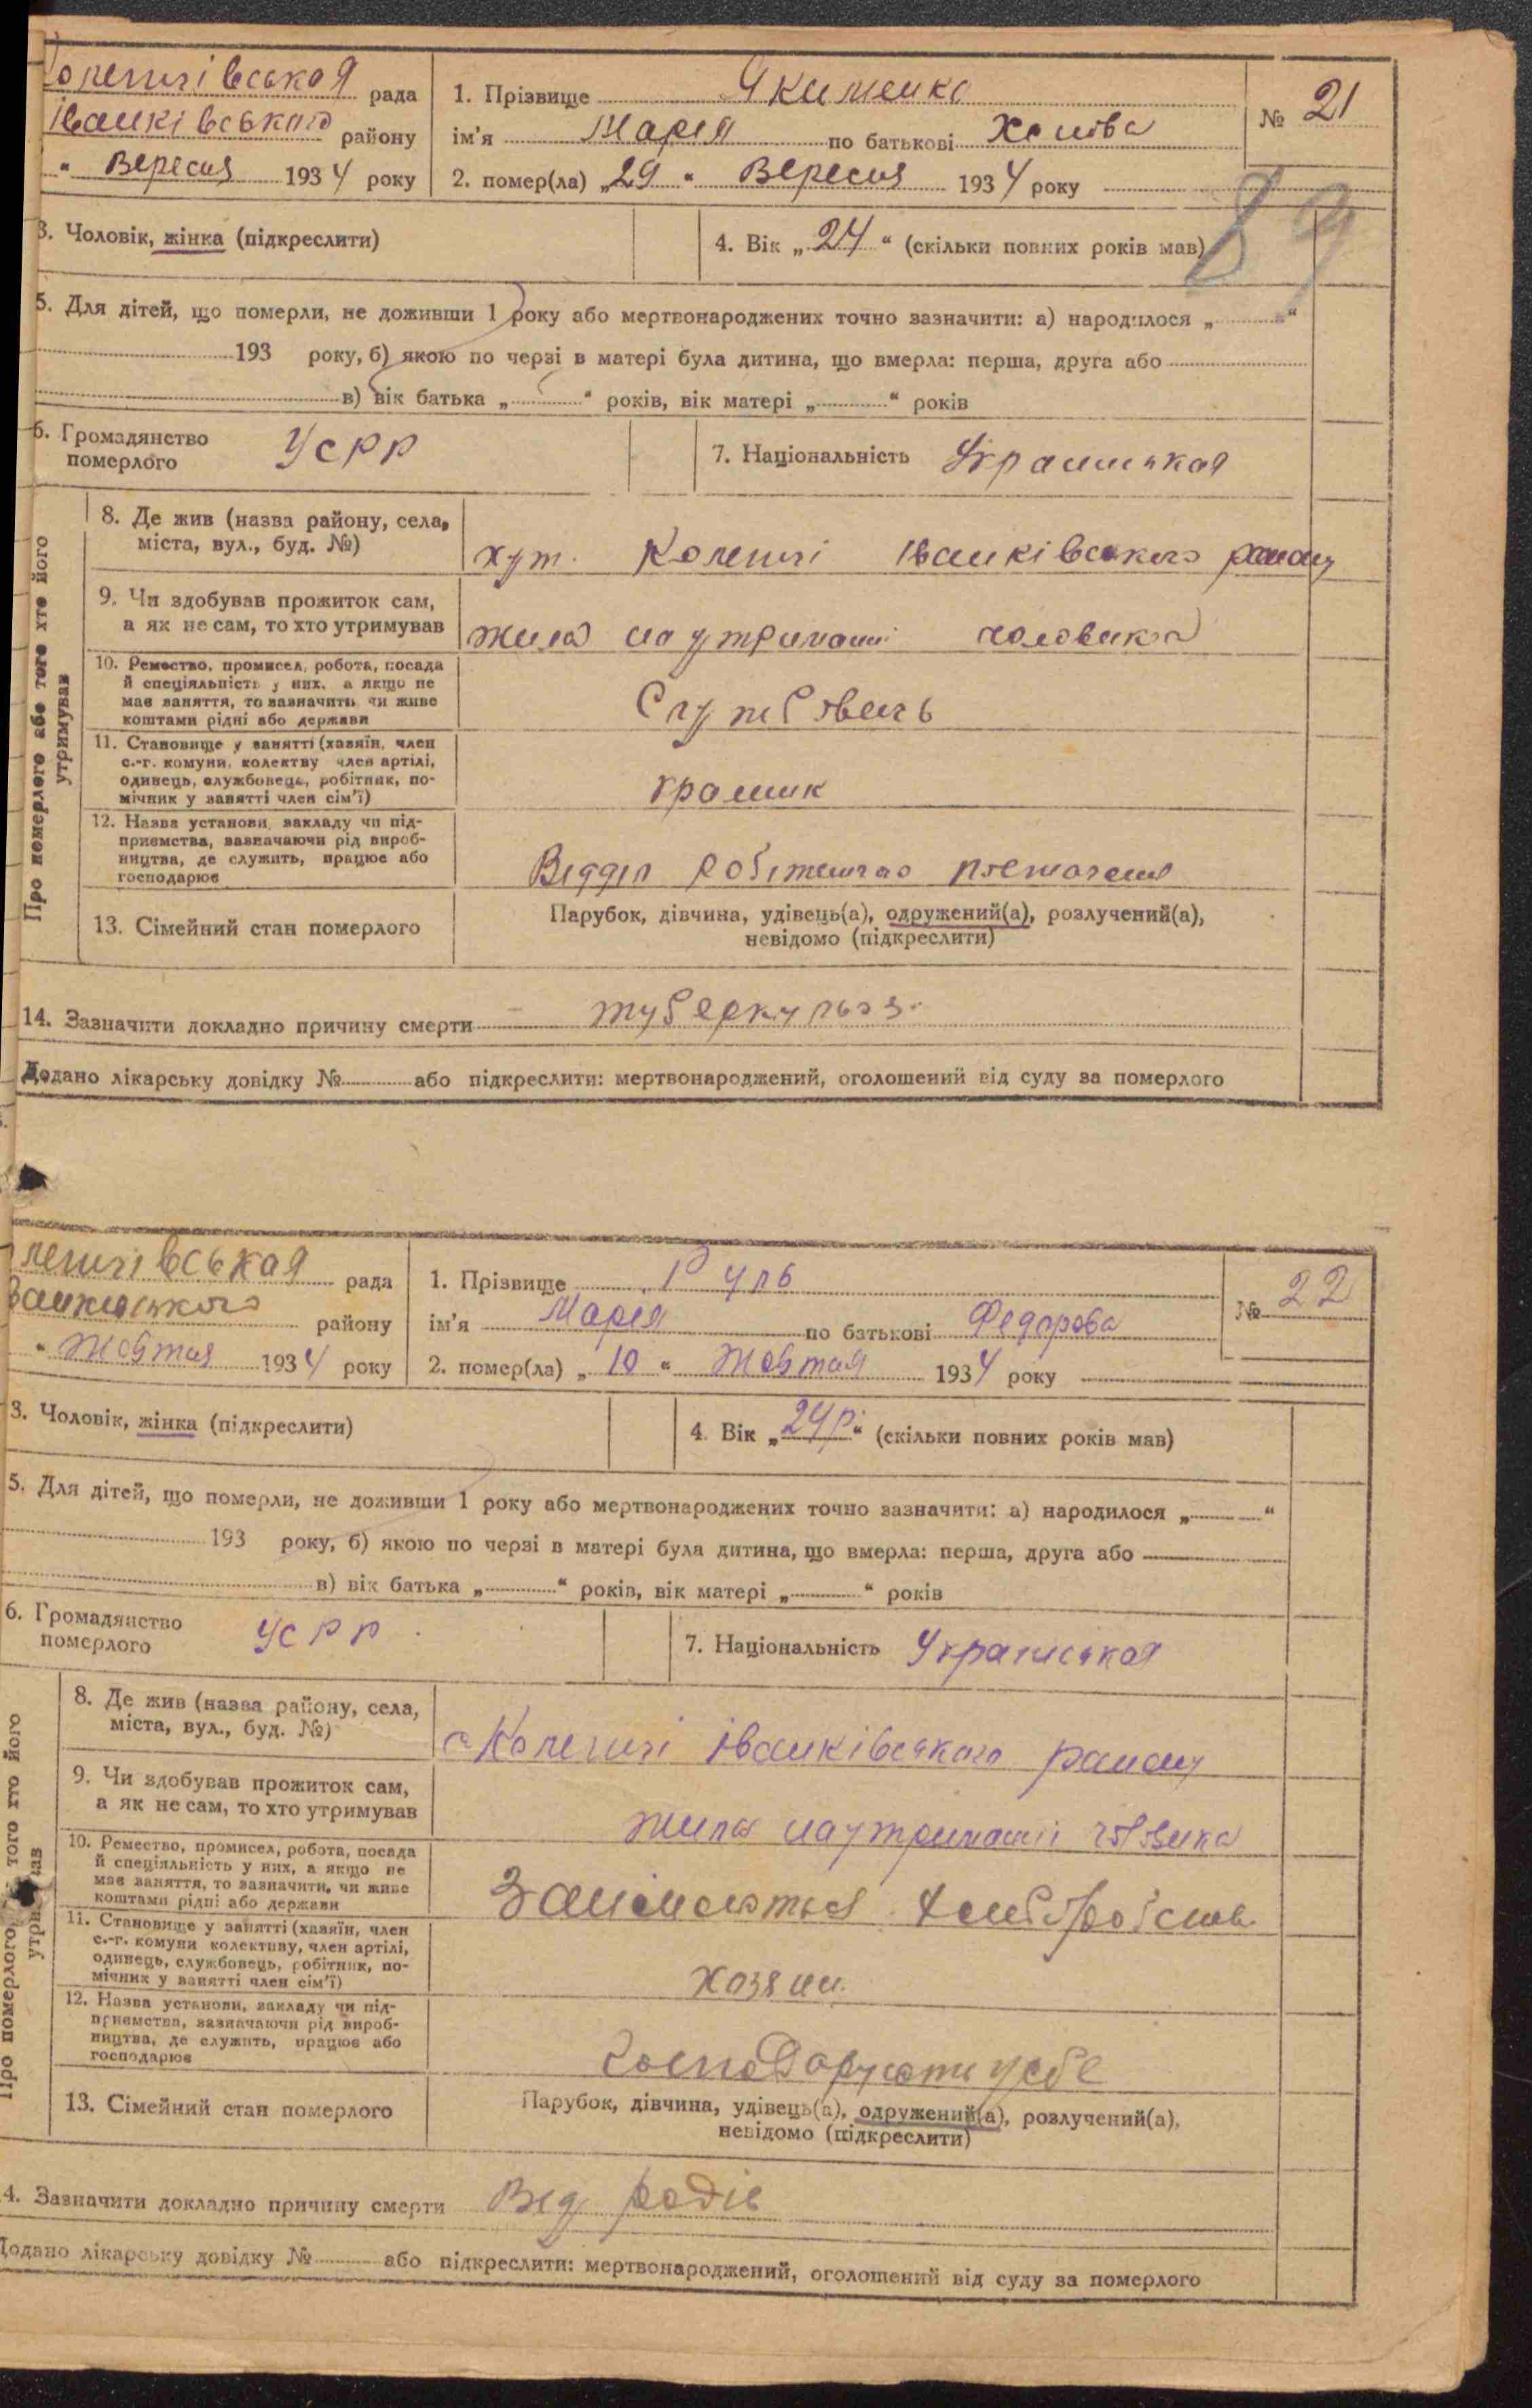 Коленцівська рада
Іванківського району
" Вересня 1934 року
1. Прізвище Якименко
№ 21
ім'я Марія по батькові
2. помер(ла) „29" Вересня 1934 року
89
3. Чоловік, жінка (підкреслити)
4. Вік „24" (скільки повних років мав)
5. Для дітей, що померли, не доживши 1 року або мертвонароджених точно зазначити: а) народилося „ "
193 року, б) якою по черзі в матері була дитина, що вмерла: перша, друга або
в) вік батька „ " років, вік матері „ " років
6. Громадянство
померлого УСРР
7. Національність Українська
Про померлого або того хто його
утримував
8. Де жив (назва району, села,
міста, вул., буд. №)
хут. Коленці Іванківського району
9. Чи здобував прожиток сам,
а як не сам, то хто утримував
жила на утриманні чоловіка
10. Ремество, промисел, робота, посада
й спеціяльність у них, а якщо не
має заняття, то зазначить чи живе
коштами рідні або держави
Службовець
11. Становище у занятті (хазяїн, член
с.-г. комуни, колектву член артілі,
одинець, службовець, робітник, по-
мічник у занятті член сім'ї)
12. Назва установи, закладу чи під-
приємства, зазначаючи рід вироб-
ництва, де служить, працює або
господарює
Відділ робітничого постачання
13. Сімейний стан померлого
Парубок, дівчина, удівець(а), одружений(а), розлучений(а),
невідомо (підкреслити)
14. Зазначити докладно причину смерти туберкульоз.
Додано лікарську довідку № або підкреслити: мертвонароджений, оголошений від суду за померлого
ленцівська рада
ванківського району
" Жовтня 1934 року
1. Прізвище Руль
№ 22
ім'я Марія по батькові Федорова
2. помер(ла) „10" Жовтня 1934 року
3. Чоловік, жінка (підкреслити)
4. Вік „24 р." (скільки повних років мав)
5. Для дітей, що померли, не доживши 1 року або мертвонароджених точно зазначити: а) народилося „ "
193 року, б) якою по черзі в матері була дитина, що вмерла: перша, друга або
в) вік батька „ " років, вік матері „ " років
6. Громадянство
померлого УСРР
7. Національність Українська
Про померлого того хто його
8. Де жив (назва району, села,
міста, вул., буд. №)
с Коленці Іванківського району
9. Чи здобував прожиток сам,
а як не сам, то хто утримував
жила на утриманні чоловіка
10. Ремество, промисел, робота, посада
й спеціяльність у них, а якщо не
має заняття, то зазначити, чи живе
коштами рідні або держави
11. Становище у занятті (хазяїн, член
с.-г. комуни колективу, член артілі,
одинець, службовець, робітник, по-
мічник у занятті член сім'ї)
хозяин.
12. Назва установи, закладу чи під-
приємства, зазначаючи рід вироб-
ництва, де служить, працює або
господарює
13. Сімейний стан померлого
Парубок, дівчина, удівець(а), одружений(а), розлучений(а),
невідомо (підкреслити)
4. Зазначити докладно причину смерти Від родів
Додано лікарську довідку № або підкреслити: мертвонароджений, оголошений від суду за померлого